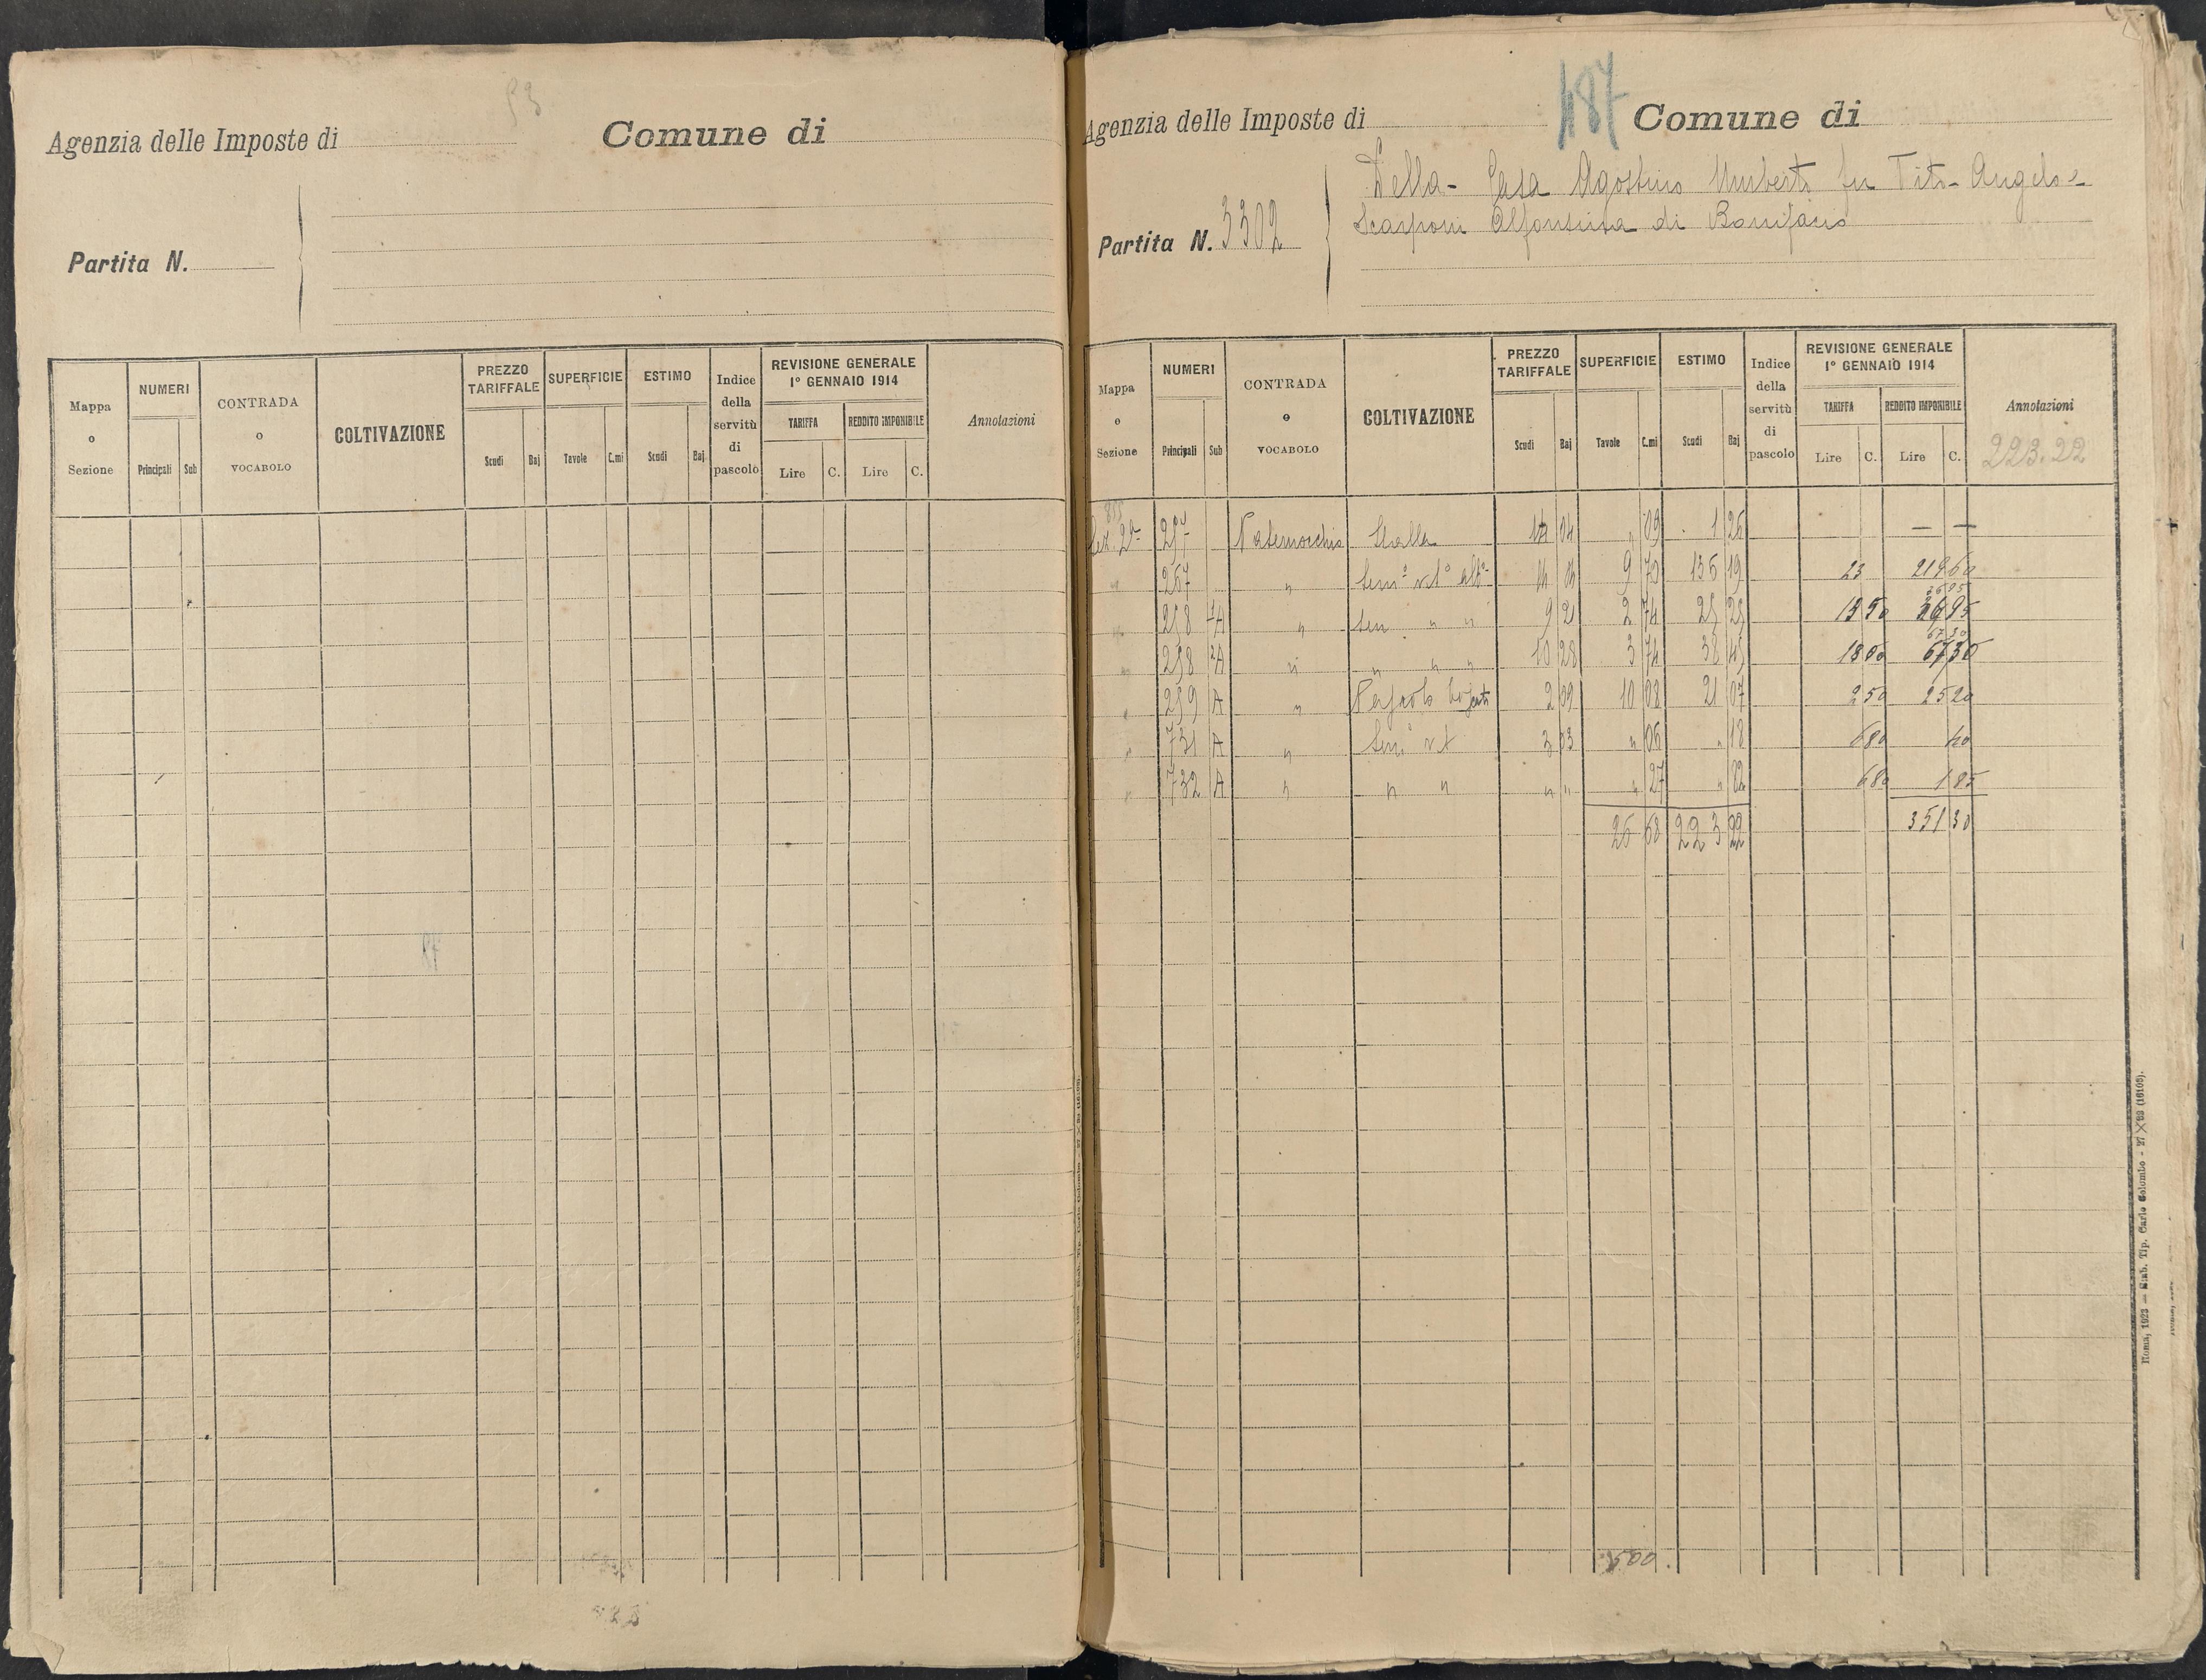 53
Agenzia delle Imposte di
Comune di
Partita N.
Mappa o Sezione
NUMERI
Principali Sub
CONTRADA o VOCABOLO
COLTIVAZIONE
PREZZO TARIFFALE
Scudi Baj
SUPERFICIE
Tavole C.mi
ESTIMO
Scudi Baj
Indice della servitù di pascolo
REVISIONE GENERALE
1° GENNAIO 1914
TARIFFA
Lire C.
REDDITO IMPONIBILE
Lire C.
Annotazioni
487
Agenzia delle Imposte di
Comune di
Partita N. 3302
Della- Casa Agostino Umberto fu Tito- Angelo e
Scarponi Alfonsina di Bonifacio
Mappa o Sezione
NUMERI
Principali Sub
CONTRADA e VOCABOLO
COLTIVAZIONE
PREZZO TARIFFALE
Scudi Baj
SUPERFICIE
Tavole C.mi
ESTIMO
Scudi Baj
Indice della servitù di pascolo
REVISIONE GENERALE
1° GENNAIO 1914
TARIFFA
Lire C.
REDDITO IMPONIBILE
Lire C.
Annotazioni
223.22
Sez. 2ª 257 Stalla 14 04 " 09 1 26 — —
" 267 " Sem° vt° alb° 14 04 9 70 136 19 23 219 60
" 258 1A " Sem " " 9 21 2 74 25 25 13 50 36 95
" 258 2A " " " " 10 28 3 74 38 45 18 00 67 30
" 259 A " Pascolo 2 09 10 08 21 07 2 50 25 20
" 731 A " Sem° vt 3 03 " 06 " 18 6 80 40
" 732 A " " " " " " 27 " 82 6 80 1 85
26 68 223 22 351 30
500
Roma, 1923 — Stab. Tip. Carlo Colombo - 27×83 (16105).